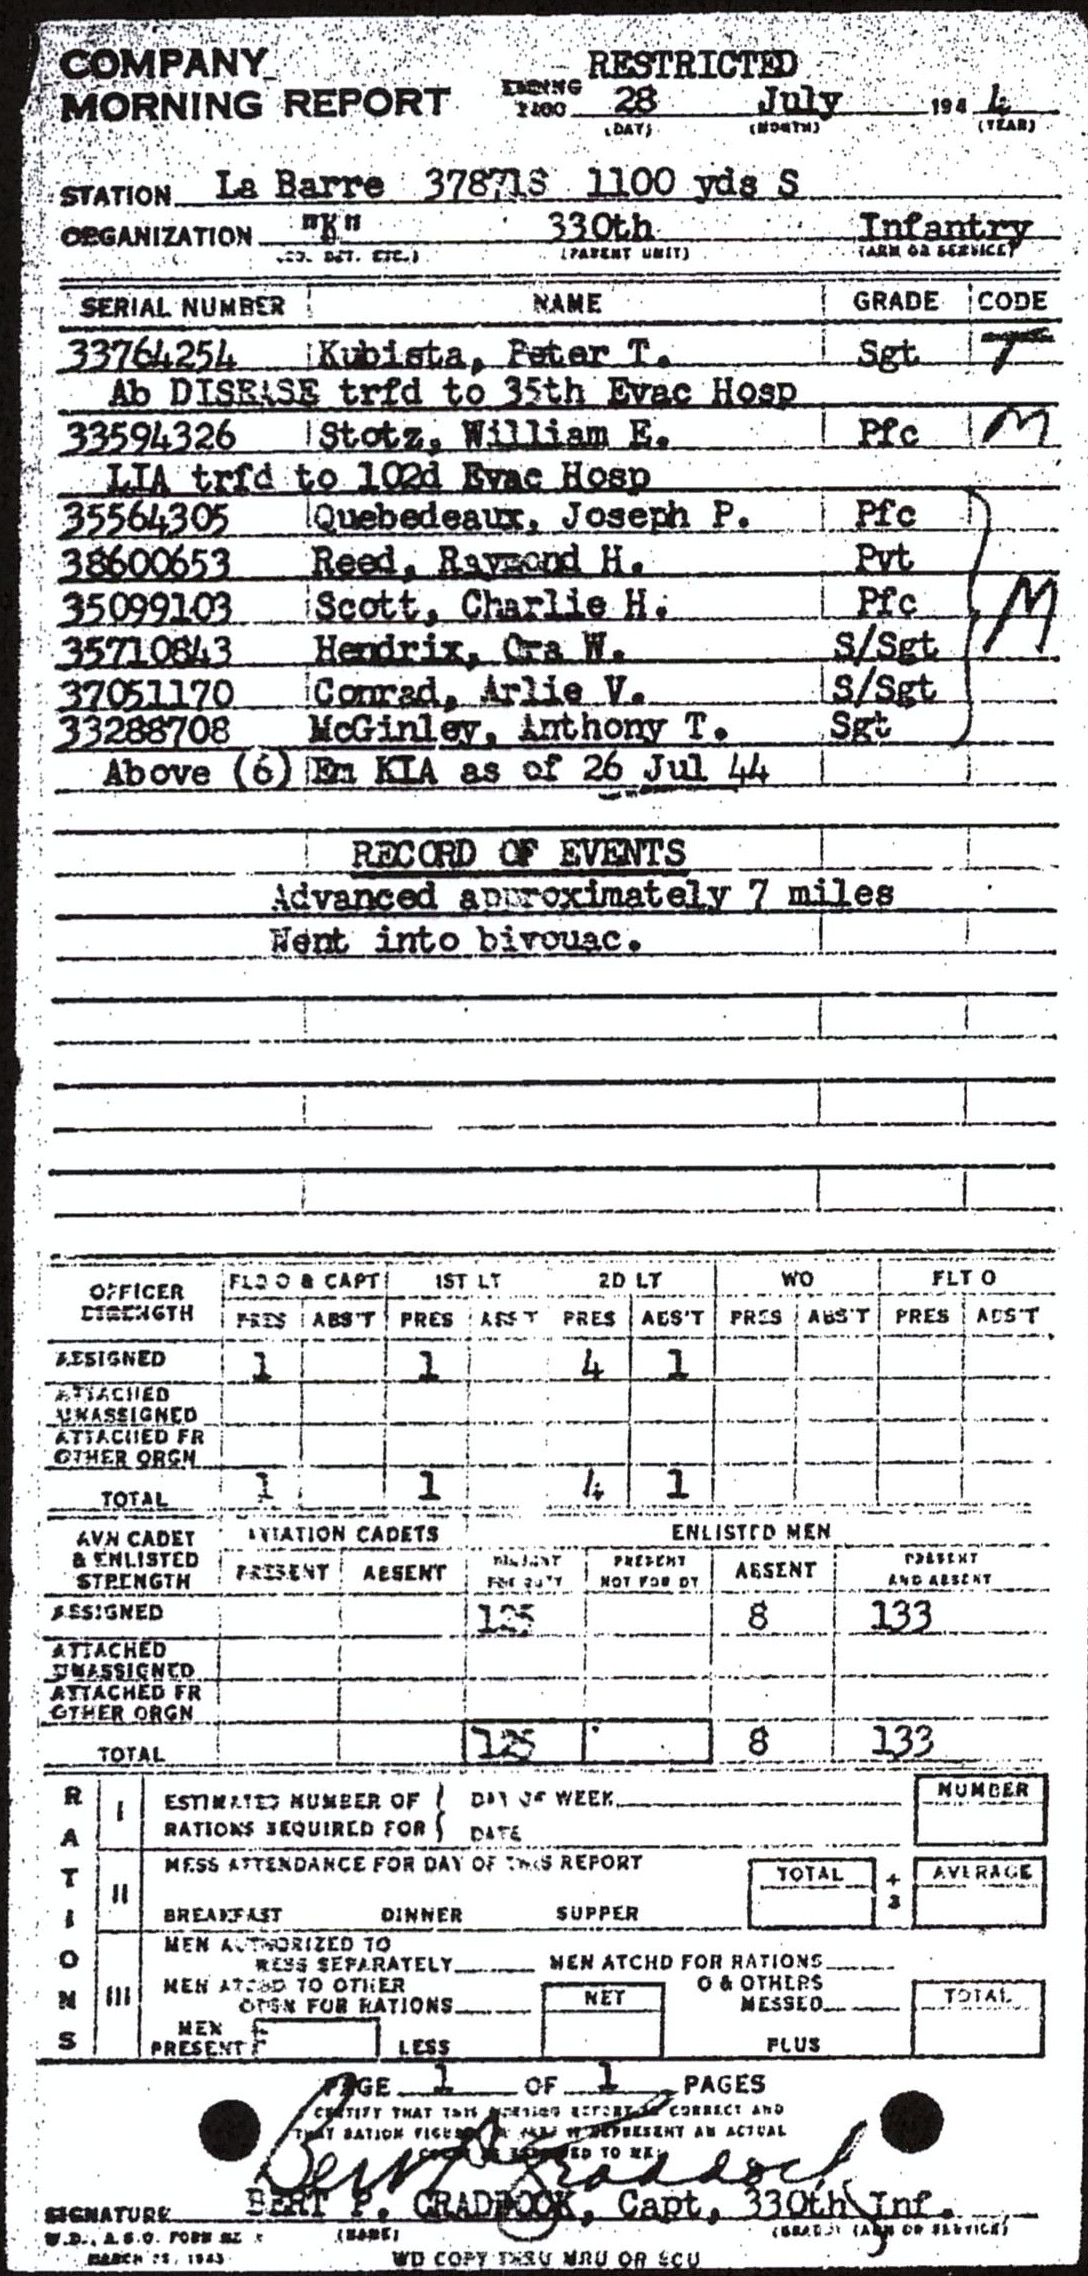 COMPANY RESTRICTED
MORNING REPORT ENDING 2400 28 July 1944
(DAY) (MONTH) (YEAR)
STATION La Barre 378718 1100 yds S
ORGANIZATION "K" 330th Infantry
(CO. DET. ETC.) (PARENT UNIT) (ARM OR SERVICE)
SERIAL NUMBER NAME GRADE CODE
33764254 Kubista, Peter T. Sgt T
Ab DISEASE trfd to 35th Evac Hosp
33594326 Stotz, William E. Pfc M
LIA trfd to 102d Evac Hosp
35564305 Quebedeaux, Joseph P. Pfc
38600653 Reed, Raymond H. Pvt
35099103 Scott, Charlie H. Pfc M
35710843 Hendrix, Ora W. S/Sgt
37051170 Conrad, Arlie V. S/Sgt
33288708 McGinley, Anthony T. Sgt
Above (6) Em KIA as of 26 Jul 44
RECORD OF EVENTS
Advanced approximately 7 miles
Went into bivouac.
OFFICER STRENGTH FLD O & CAPT 1ST LT 2D LT WO FLT O
PRES ABS'T PRES ABS'T PRES ABS'T PRES ABS'T PRES ABS'T
ASSIGNED 1 1 4 1
ATTACHED
UNASSIGNED
ATTACHED FR
OTHER ORGN
TOTAL 1 1 4 1
AVN CADET & ENLISTED STRENGTH AVIATION CADETS ENLISTED MEN
PRESENT ABSENT PRESENT FOR DUTY PRESENT NOT FOR DY ABSENT PRESENT AND ABSENT
ASSIGNED 125 8 133
ATTACHED
UNASSIGNED
ATTACHED FR
OTHER ORGN
TOTAL 125 8 133
RATIONS
I ESTIMATED NUMBER OF DAY OF WEEK NUMBER
RATIONS REQUIRED FOR DATE
II MESS ATTENDANCE FOR DAY OF THIS REPORT TOTAL ÷ 3 AVERAGE
BREAKFAST DINNER SUPPER
III MEN AUTHORIZED TO
MESS SEPARATELY MEN ATCHD FOR RATIONS
MEN ATCHD TO OTHER O & OTHERS
ORGN FOR RATIONS NET MESSED TOTAL
MEN
PRESENT LESS PLUS
PAGE 1 OF 1 PAGES
CERTIFY THAT THIS MORNING REPORT IS CORRECT AND
THAT RATION REPRESENT AN ACTUAL
TO ME
Bert P. Craddock
SIGNATURE BERT P. CRADDOCK, Capt, 330th Inf.
W.D., A.G.O. FORM (NAME) (GRADE) (ARM OR SERVICE)
MARCH 1943
WD COPY THRU MRU OR SCU